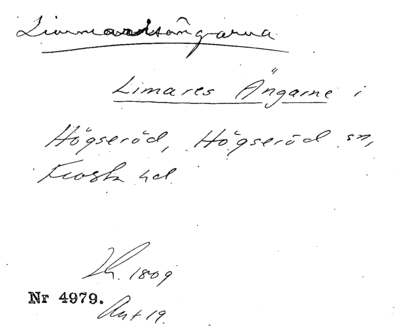 Limares Ängarne i
Högseröd, Högseröd sn,
Frosta hd
1809
Nr 4979.
Akt 19.